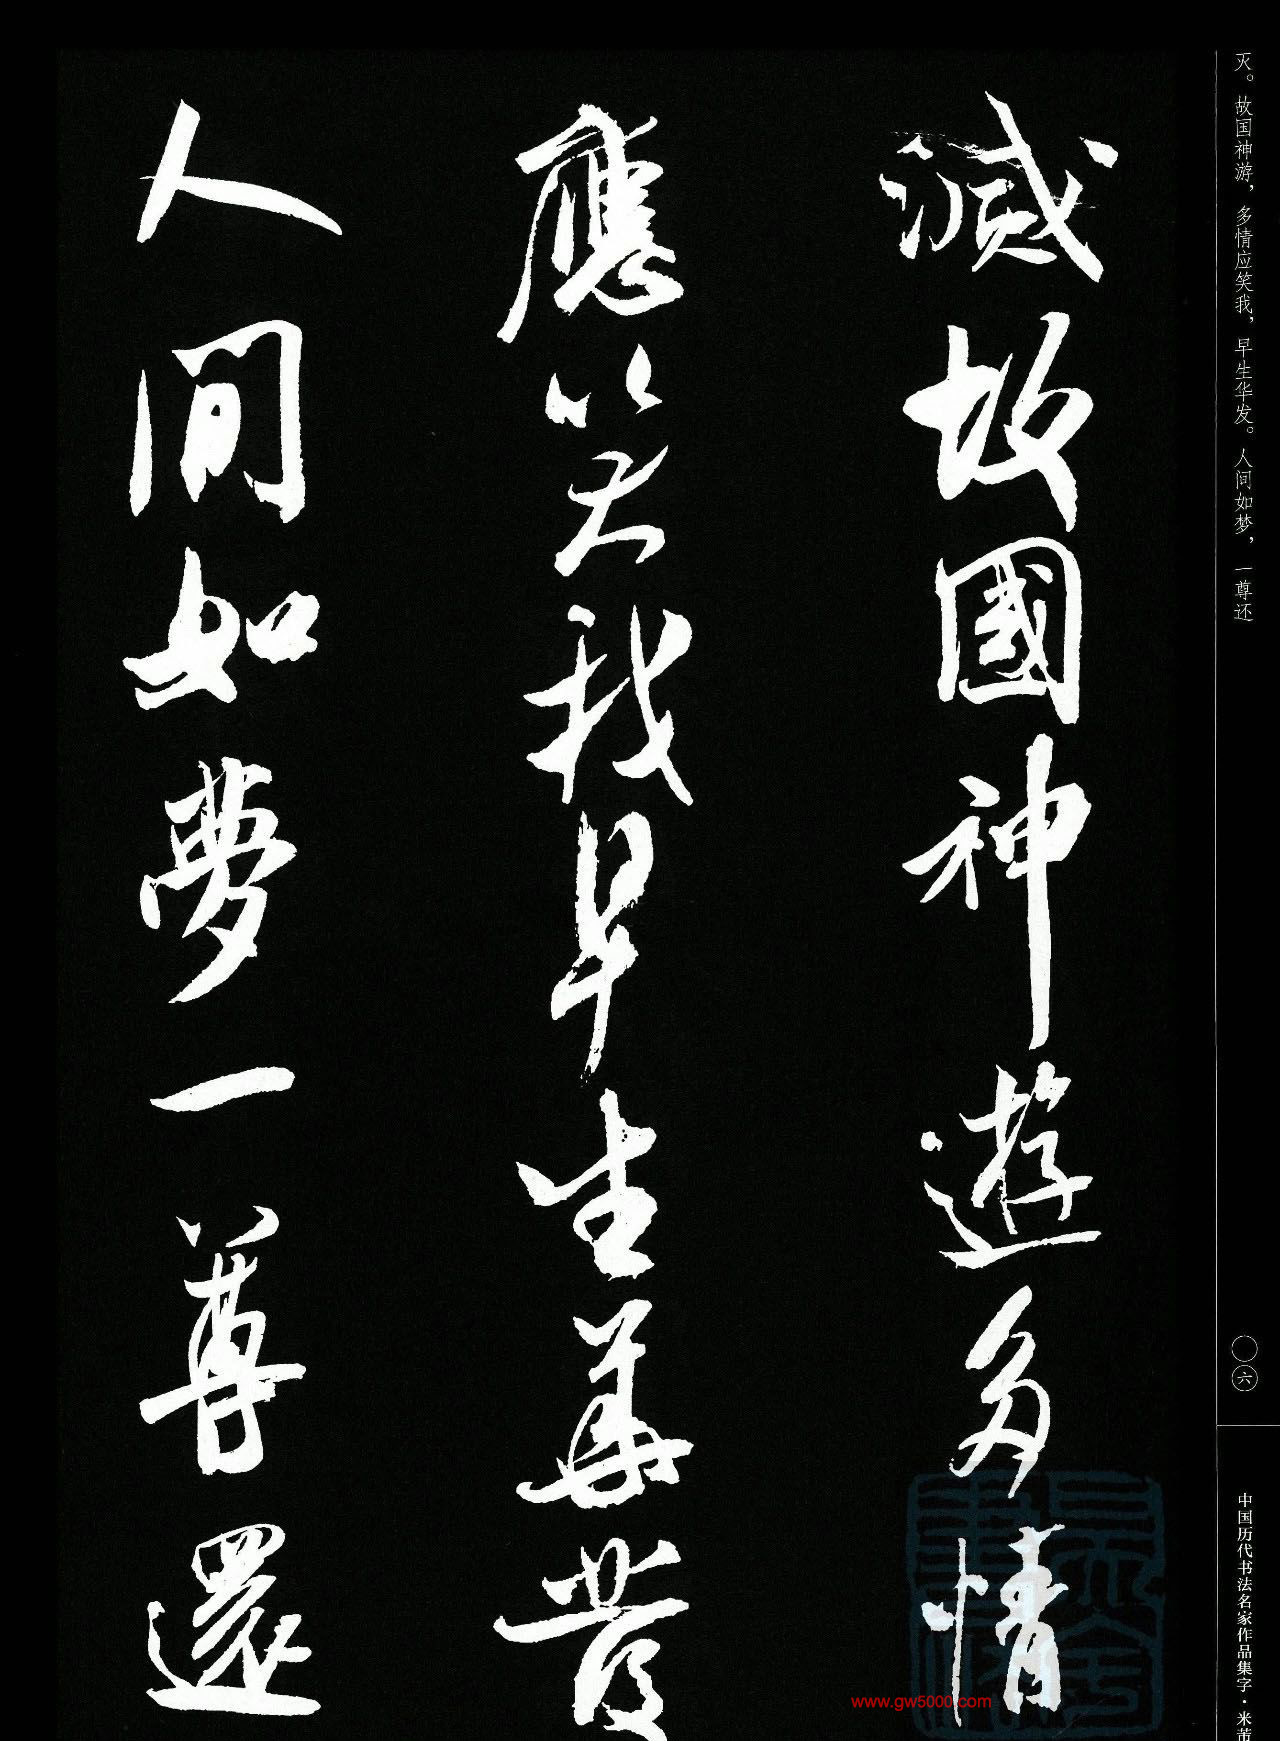 灭。故国神游，多情应笑我，早生华发。人间如梦，一尊还
滅故國神遊多情
應笑我早生華發
人間如夢一尊還
〇六
中国历代书法名家作品集字·米芾
www.gw5000.com